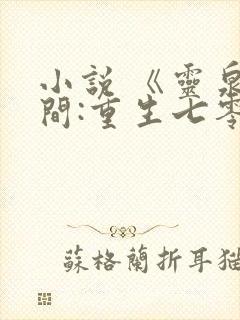 小說《靈泉
間:重生七零
蘇格蘭折耳貓